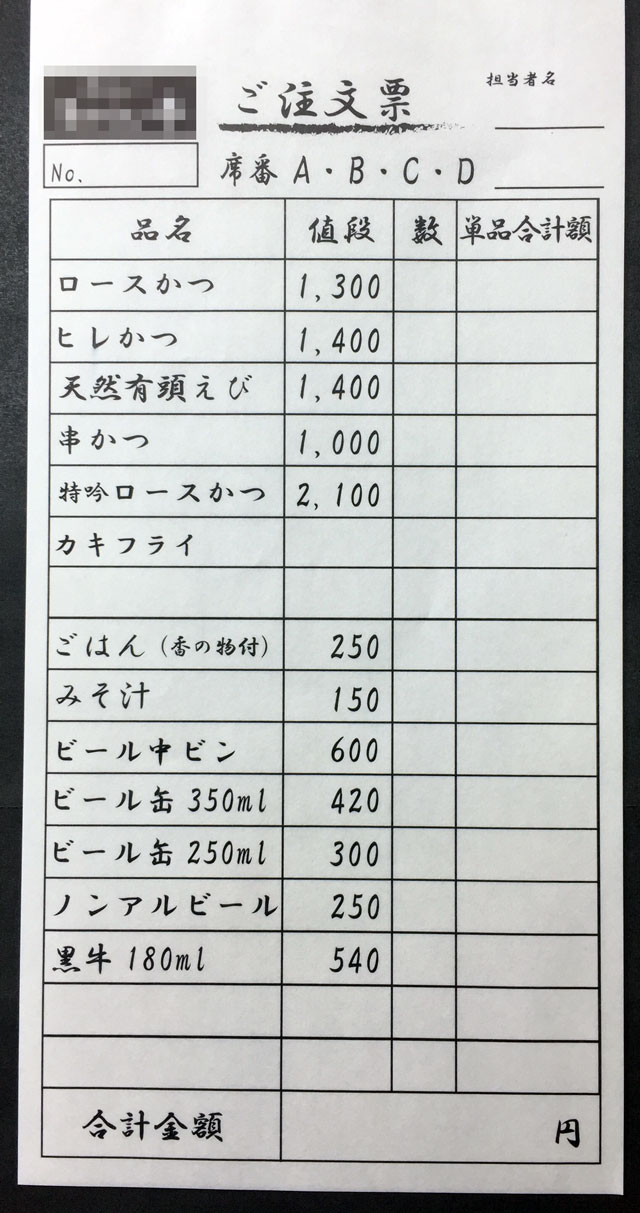 ご注文票
担当者名
No.
席番 A・B・C・D
品名 値段 数 単品合計額
ロースかつ 1,300
ヒレかつ 1,400
天然有頭えび 1,400
串かつ 1,000
特吟ロースかつ 2,100
カキフライ
ごはん（香の物付） 250
みそ汁 150
ビール中ビン 600
ビール缶 350ml 420
ビール缶 250ml 300
ノンアルビール 250
黒牛 180ml 540
合計金額 円